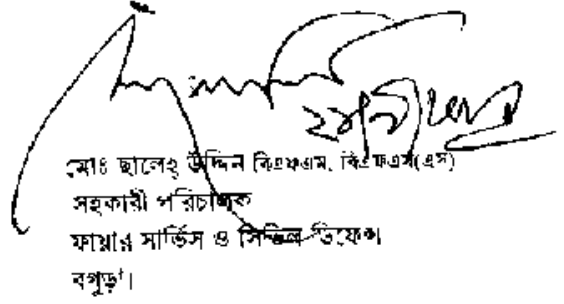 মোঃ ছালেহ্ উদ্দিন বিএফএম, বিএফএম(এস)
সহকারী পরিচালক
ফায়ার সার্ভিস ও সিভিল ডিফেন্স
বগুড়া।